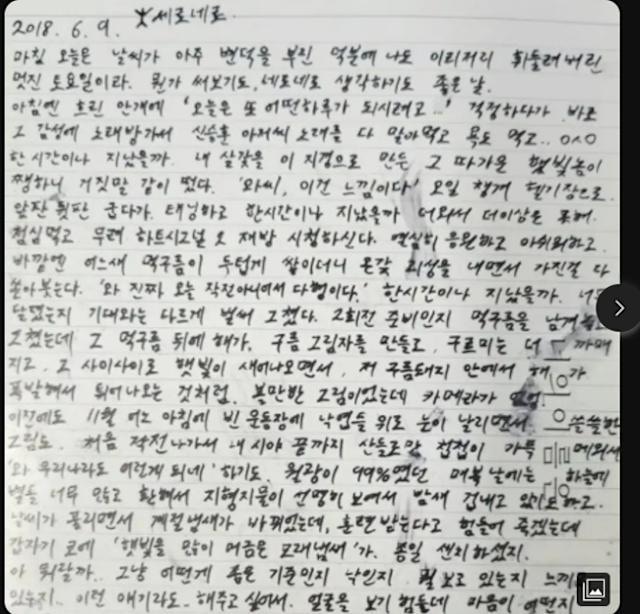 2018. 6. 9. 세로네로.
마침 오늘은 날씨가 아주 변덕을 부린 덕분에 나도 이리저리 휘둘려버린
멋진 토요일이라. 뭔가 써보기도, 네로네로 생각하기도 좋은 날.
아침엔 흐린 안개에 '오늘은 또 어떤하루가 되시려고...' 걱정하다가 바로
그 감성에 노래방가서 신승훈 아저씨 노래를 다 말아먹고 욕도 먹고..
한시간이나 지났을까. 내 살갗을 이 지경으로 만든 그 따가운 햇빛놈이
쨍하니 거짓말 같이 떴다. '와씨, 이건 느낌이다' 오일 챙겨 헬기장으로.
앞판 뒷판 굽다가. 태닝하고 한시간이나 지났을까 더와서 더이상은 못해.
점심먹고 무려 하트시그널 2 재방 시청하신다. 열심히 응원하고 아쉬워하고.
바깥엔 어느새 먹구름이 두텁게 쌓이더니 온갖 괴성을 내면서 가진걸 다
쏟아붓는다. '와 진짜 오늘 작전아니어서 다행이다.' 한시간이나 지났을까.
달랬는지 기대와는 다르게 벌써 그쳤다. 2회전 준비인지 먹구름을 남겨
그쳤는데 그 먹구름 뒤에 해가. 구름 그림자를 만들고, 구르미는 더 까매
지고, 그 사이사이로 햇빛이 새어나오면서, 저 구름돼지 안에서 해 가
폭발해서 튀어나오는 것처럼. 볼만한 그림이었는데 카메라가
이전에도 11월 어느 아침에 빈 운동장에 낙엽들 위로 눈이 날리면서 쓸쓸한
그림도. 처음 작전나가서 내 시야 끝까지 산들로만 첩첩이 가득 메워서
'와 우리나라도 이런게 되네' 하기도. 월광이 99%였던 매복 날에는 하늘에
별들 너무 많고 환해서 지형지물이 선명히 보여서 밤새 겁내고 있기도하고.
날씨가 풀리면서 계절냄새가 바뀌었는데, 훈련받는다고 힘들어 죽겠는데
갑자기 코에 '햇빛을 많이 머금은 모래냄새'가. 종일 센치하셨지.
아 뭐랄까.. 그냥 어떻게 좋은 기분인지 낙인지 뭘 보고 있는지
있는지.. 이런 얘기라도.. 해주고 싶어서. 얼굴을 보기 힘든데 마음이 어떤지